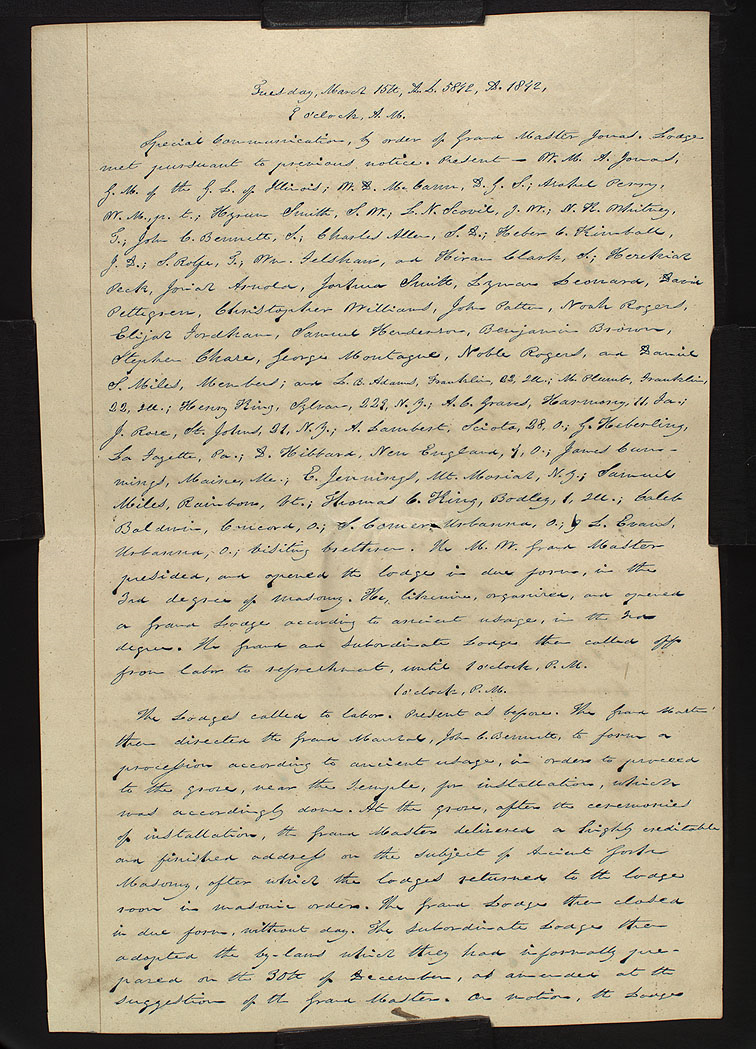 Tuesday, March 15th, A. L. 5842, A.D. 1842,
9 o'clock, A. M.
Special Communication, by order of Grand Master Jonas. Lodge
met pursuant to previous notice. Present — W. M. A. Jonas,
G. M. of the G. L. of Illinois; W. D. McCann, D. G. S.; Asahel Perry,
W. M., p. t.; Hyrum Smith, S. W.; L. N. Scovil, J. W.; N. K. Whitney,
T.; John C. Bennett, S.; Charles Allen, S. D.; Heber C. Kimball,
J. D.; S. Rolfe, T.; Wm. Felshaw, and Hiram Clark, S.; Hezekiah
Peck, Josiah Arnold, Joshua Smith, Lyman Leonard, David
Pettegrew, Christopher Williams, John Patten, Noah Rogers,
Elijah Fordham, Samuel Henderson, Benjamin Brown,
Stephen Chase, George Montague, Noble Rogers, and Daniel
S. Miles, Members; and L. B. Adams, Franklin, 22, Ill.; M. Plumb, Franklin,
22, Ill.; Henry King, Sylvan, 229, N. Y.; A. C. Graves, Harmony, 11, Ia.;
J. Rose, St. Johns, 21, N. Y.; A. Lambert, Sciota, 28, O.; G. Heberling,
La Fayette, Pa.; D. Hibbard, New England, 4, O.; James Cum-
mings, Maine, Me.; E. Jennings, Mt. Moriah, N. Y.; Samuel
Miles, Rainbow, Vt.; Thomas C. King, Bodley, 1, Ill.; Caleb
Baldwin, Concord, O.; S. Comer, Urbanna, O.; L. Evans,
Urbanna, O.; visiting brethren. The M. W. Grand Master
presided, and opened the lodge in due form, in the
3rd degree of masonry. He, likewise, organized, and opened
a Grand Lodge according to ancient usage, in the 3rd
degree. The Grand and Subordinate Lodges then called off
from labor to refreshment, until 1 o'clock, P. M.
1 o'clock, P. M.
The Lodges called to labor. Present as before. The Grand Master
then directed the Grand Marshal, John C. Bennett, to form a
procession according to ancient usage, in order to proceed
to the grove, near the Temple, for installation, which
was accordingly done. At the grove, after the ceremonies
of installation, the Grand Master delivered a highly creditable
and finished address on the subject of Ancient York
Masonry, after which the lodges returned to the lodge
room in masonic order. The Grand Lodge then closed
in due form, without day. The Subordinate Lodge then
adopted the by-laws which they had informally pre-
pared on the 30th of December, as amended at the
suggestion of the Grand Master. On motion, the Lodge